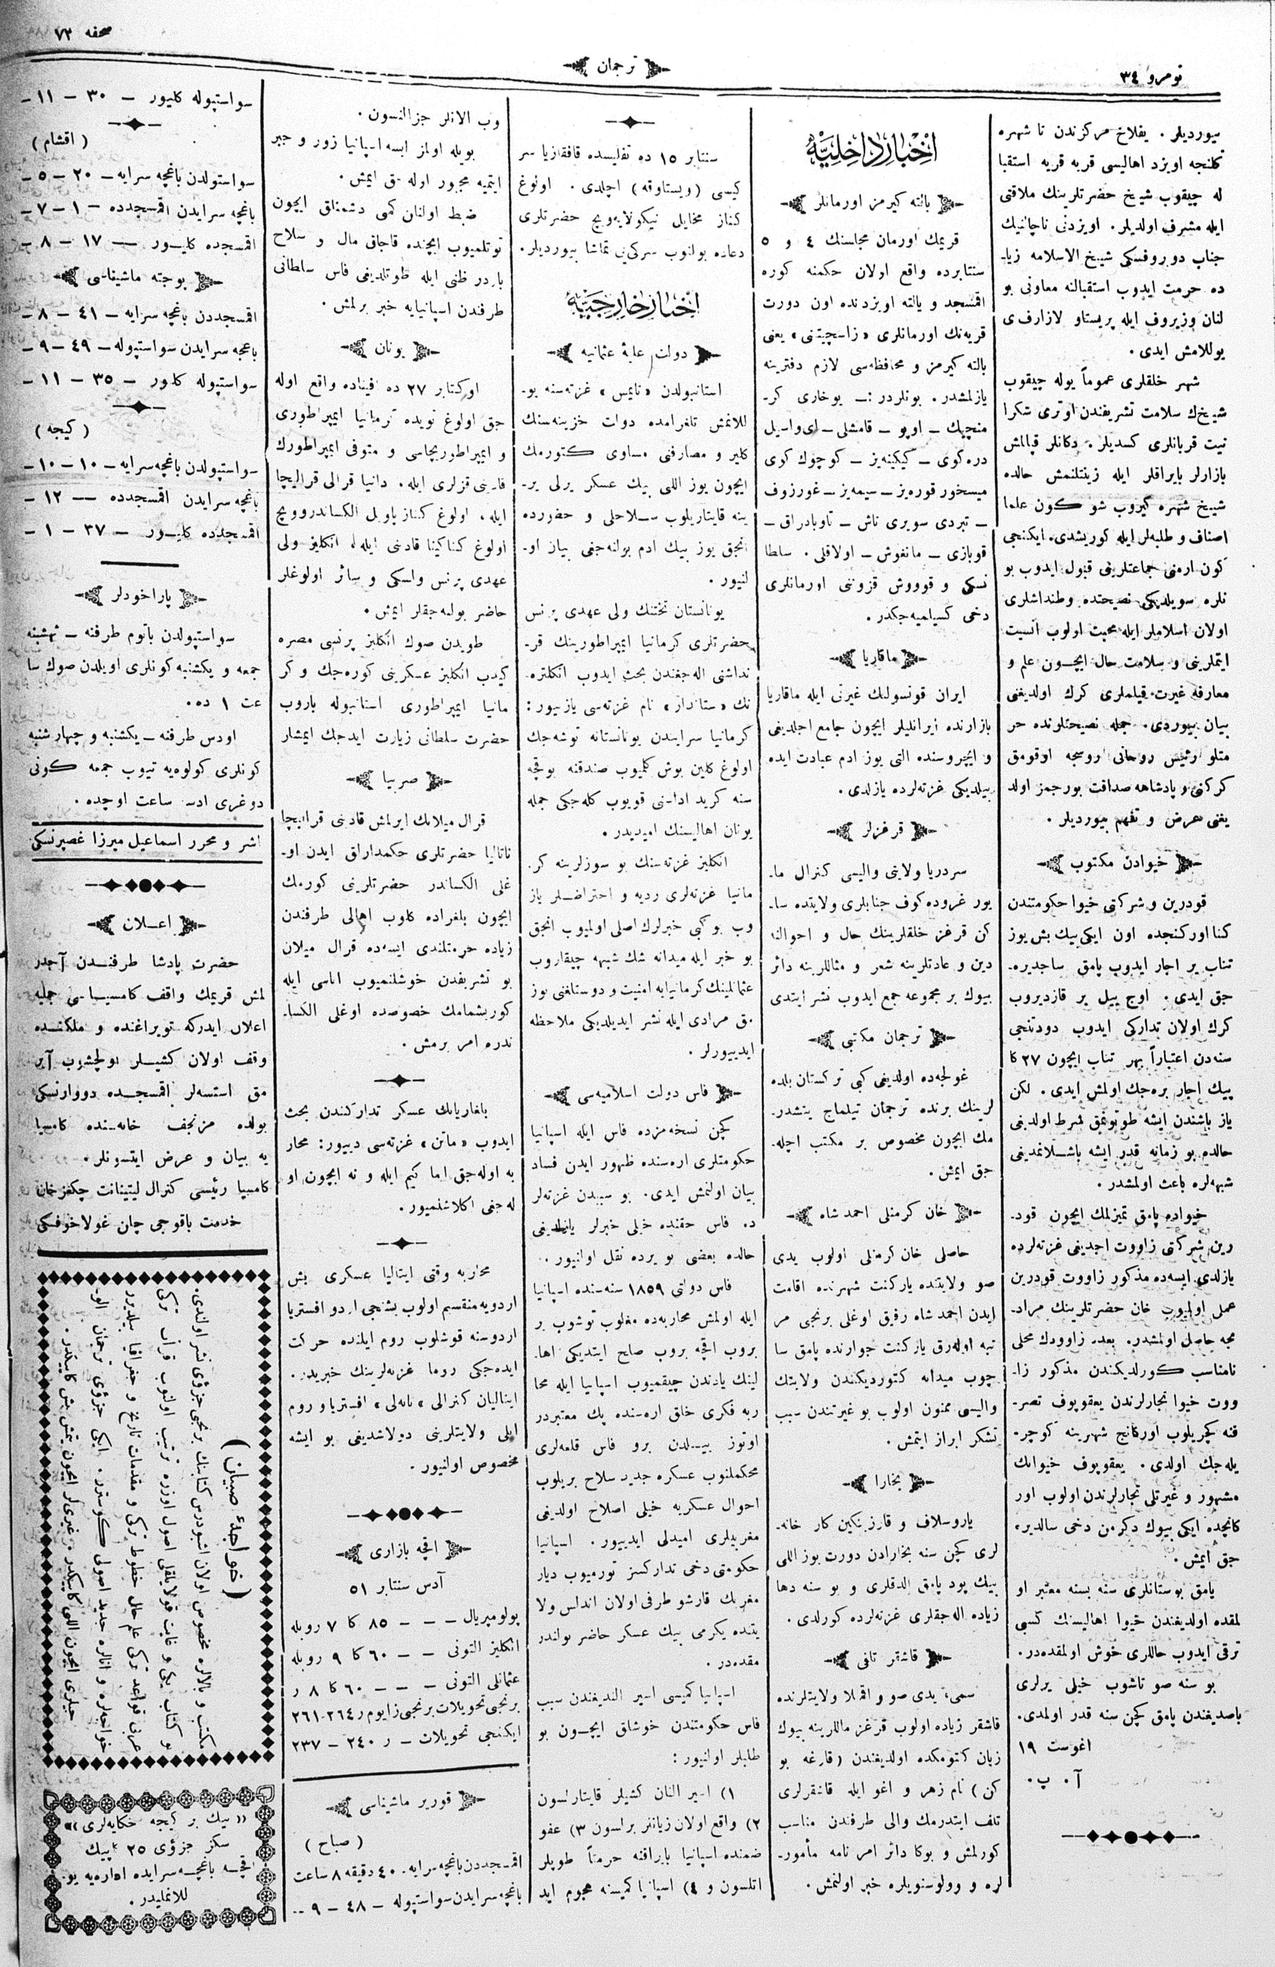 نومرو ٣٤
ترجمان
صحفه ٧٣
بیوردیلر. یفلاخ مرکزندن تا شهره
کلنجه اویزد اهالیسی قریه قریه استقبا
له چیقوب شیخ حضرتلرینك ملاقتی
ایله مشرف اولدیلر. اویزدنی ناچانیك
جناب دوبروفسکی شیخ الاسلامه زیا۔
ده حرمت ایدوب استقبالنه معاونی بو
لنان وزیروف ایله پریستاو لازارفی
یوللامش ایدی.
شهر خلقلری عموماً یوله چیقوب
شیخك سلامت تشریفندن اوتری شکرا
نیت قربانلری کسدیلر. دکانلر قپالمش
بازارلر بایراقلر ایله زینتلنمش حالده
شیخ شهره کیروب شو کون علما
اصناف و طلبه‌لر ایله کوریشدی. ایکنجی
کون ارمنی جماعتلرینی قبول ایدوب بو
نلره سویلدیکی نصیحتده وطنداشلری
اولان اسلاملر ایله محبت اولوب انسیت
ایتملرینی و سلامت حال ایچون علم و
معارفه غیرت قیلملری کرك اولدیغی
بیان بیوردی. جمله نصیحتلونده حر
متلو رئیس روحانی روسجه اوقومق
کرکنی و پادشاهه صداقت بورجمز اولد
یغنی عرض و تفهیم بیوردیلر.
خیوادن مکتوب
قودرین و شرکتی خیوا حکومتندن
کنا اورکنجده اون ایکی بیك بش یوز
تناب یر اجار ایدوب پامق ساجدیره۔
جق ایدی. اوچ ییل یر قازدیروب
کرك اولان تدارکی ایدوب دودنجی
سنه‌دن اعتباراً بهر تناب ایچون ٢٧ کا
پیك اجار بره‌جك اولمش ایدی. لکن
یاز باشندن ایشه طوتونمق شرط اولدیغی
حالدم بو زمانه قدر ایشه باشلانمدیغی
شبهه‌لره باعث اولمشدر.
خیواده پامق تمیزلمك ایچون قود۔
رین شرکتی زاووت اچدیغی غزته‌لرده
یازلدی ایسه‌ده مذکور زاووت قودرین
عملی اولمیوب خان حضرتلرینك مراد۔
مجه حاصل اولمشدر. بعد زاوودك محلی
نامناسب کورلدیکندن مذکور زا۔
ووت خیوا تجارلرندن یعقوپوف تصر۔
فنه کچریلوب اورکانج شهرینه کوچر۔
یله‌جك اولدی. یعقوپوف خیوانك
مشهور و غیرتلی تجارلرندن اولوب اور
کانجده ایکی بیوك دکرمن دخی سالدیره
جق ایمش.
پامق بوستانلری سنه بسنه معتبر او
لمقده اولدیغندن خیوا اهالیسنك کسبی
ترقی ایدوب حاللری خوش اولمقده‌در.
بو سنه صو تاشوب خیلی یرلری
باصدیغندن پامق کچن سنه قدر اولمدی.
اغوست ١٩
آ. پ.
اخبار داخلیه
یالته کیرمز اورمانلر
قریمك اورمان مجاسنك ٤ و ٥
سنتابرده واقع اولان حکمنه کوره
اقمسجد و یالته اویزدنده اون دورت
قریه‌نك اورمانلری «زاسچیتنی» یعنی
بالته کیرمز و محافظه‌سی لازم دفترینه
یازلمشدر. بونلردر: ـ یوخاری کر۔
منچیك ـ اویو ـ قامشلی ـ ای‌واسیل
دره‌کوی ـ کیکنه‌یز ـ کوچوك کوی
میسخور قوره‌یز ـ سیمه‌یز ـ غورزوف
ـ تبردی سوبری تاش ـ تاوبادراق ـ
قوبازی ـ مانغوش ـ اولاقلی. سلطا
نسکی و قوووش قزونی اورمانلری
دخی کسیلمیه‌جکدر.
ماقاریا
ایران قونسولنك غیرتی ایله ماقاریا
بازارنده ایرانلیلر ایچون جامع اچلدیغی
و ایچروسنده التی یوز ادم عبادت ایده
بیلدیکی غزته‌لرده یازلدی.
قرغزلر
سردریا ولاینی والیسی کنرال ما۔
یور غروده‌کوف جنابلری ولایتده سا۔
کن قرغز خلقلرینك حال و احوالنه
دین و عادتلرینه شعر و مثاللرینه دائر
بیوك بر مجموعه جمع ایدوب نشر ایتدی
ترجمان مکتبی
غولجه‌ده اولدیغی کبی ترکستان بلده
لرینك برنده ترجمان تیلماج یتشدر۔
مك ایچون مخصوص بر مکتب اچله۔
جق ایمش.
خان کرمنلی احمد شاه
حاصلی خان کرمنلی اولوب یدی
صو ولایتده یارکنت شهرنده اقامت
ایدن احمد شاه رفیق اوغلی برنجی مر
تبه اوله‌رق یارکنت جوارنده پامق سا
چوب میدانه کتوردیکندن ولایتك
والیسی ممنون اولوب بو غیرتندن سبب
تشکر ابراز ایتمش.
بخارا
یاروسلاف و قارزینکین کار خانه۔
لری کچن سنه بخارادن دورت یوز اللی
بیك پود پامق الدقلری و بو سنه دها
زیاده اله‌جقلری غزته‌لرده کورلدی.
قاشقر تلفی
سمی، یدی صو و اقملا ولایتلرنده
قاشقر زیاده اولوب قرغز ماللرینه بیوك
زیان کتومکده اولدیغندن (قارغه بو
کن) نام زهر و اغو ایله قاشقرلری
تلف ایتدرمك والی طرفندن مناسب
کورلمش و بوکا دائر امر نامه مأمور۔
لره و وولوسنویلره خبر اولنمش.
سنتابر ١٥ ده تفلیسده قافقازیا سر
کیسی (ویستاوقه) اچلدی. اولوغ
کناز مخایل نیکولایه‌ویچ حضرتلری
دعاده بولنوب سرکیی تماشا بیوردیلر.
اخبار خارجیه
دولت علیۀ عثمانیه
استانبولدن «تایمس» غزته‌سنه یو۔
للانمش تلغرامده دولت خزینه‌سنك
کلیر و مصارفنی مساوی کتورمك
ایچون یوز اللی بیك عسکر یرلی یر۔
ینه قایتاریلوب سلاحلی و حضورده
انجق یوز بیك ادم بولنه‌جغی بیان او۔
لنیور.
یونانستان تختنك ولی عهدی پرنس
حضرتلری کرمانیا ایمپراطورینك قر۔
نداشنی اله‌جغندن بحث ایدوب انکلتره۔
نك «ستاندار» نام غزته‌سی یازیور:
کرمانیا سرایندن یونانستانه توشه‌جك
اولوغ کلین بوش کلمیوب صندقنه بوقچه
سنه کرید اداسنی قویوب کله‌جکی جمله
یونان اهالیسنك امیدیدر.
انکلیز غزته‌سنك بو سوزلرینه کر۔
مانیا غزته‌لری ردیه و اعتراضلر یاز
وب بوکبی خبرلرك اصلی اولمیوب انجق
بو خبر ایله میدانه شك شبهه چیقاروب
عثمانلینك کرمانیایه امنیت و دوستلغنی بوز
مق مرادی ایله نشر ایدیلدیکی ملاحظه
ایدییورلر.
فاس دولت اسلامیه‌سی
کچن نسخه‌مزده فاس ایله اسپانیا
حکومتلری اره‌سنده ظهور ایدن فساد
بیان اولنمش ایدی. بو سببدن غزته‌لر
د. فاس حقنده خیلی خبرلر یازلدیغی
حالده بعضی بو یرده نقل اولنیور.
فاس دولتی ١٨٥٩ سنه‌سنده اسپانیا
ایله اولمش محاربه‌ده مغلوب توشوب بر
یروب اقچه بروب صلح ایتدیکی اها۔
لینك یادندن چیقمیوب اسپانیا ایله محا
ربه فکری خلق اره‌سنده پك معتبردر
اوتوز ییلدن برو فاس قلعه‌لری
محکملنوب عسکره جدید سلاح بریلوب
احوال عسکریه خیلی اصلاح اولدیغی
مغربیلری امیدلی ایدییور. اسپانیا
حکومتی دخی تدارکسز تورمیوب دیار
مغربك قارشو طرفی اولان اندلس ولا
یتده یکرمی بیك عسکر حاضر بولندر
مقده‌در.
اسپانیا کمیسی اسیر الندیغندن سبب
فاس حکومتندن خوشلق ایچون بو
طابلر اولنیور:
١) اسیر النان کشیلر قایتارلسون
٢) واقع اولان زیانلر برلسون ٣) عفو
ضمنده اسپانیا بایراقنه حرمتاً طوپلر
اتلسون و ٤) اسپانیا کمیسنه هجوم اید
وب الانلر جزالنسون.
بویله اولماز ایسه اسپانیا زور و جبر
ایتمیه مجبور اوله‌جق ایمش.
ضبط اولنان کمی دشمنلق ایچون
توتلمیوب ایچنده قاچاق مال و سلاح
باردر ظنی ایله طوتلدیغی فاس سلطانی
طرفندن اسپانیایه خبر برلمش.
یونان
اوکتابر ٢٧ ده افیناده واقع اوله
جق اولوغ تویده ترمانیا ایمپراطوری
و ایمپراطوریچاسی و متوفی ایمپراطورك
قادینی قزلری ایله. دانیا قرالی قرالیچا
ایله. اولوغ کناز پاویل الکساندروویچ
اولوغ کناکینا قادنی ایله، انکلیز ولی
عهدی پرنس والسکی و سائر اولوغلر
حاضر بولنه‌جقلر ایمش.
طویدن صوك انکلیز پرنسی مصره
کیدب انکلیز عسکرینی کوره‌جك و کر
مانیا ایمپراطوری استانبوله باروب
حضرت سلطانی زیارت ایده‌جك ایمشار
صربیا
قرال میلانك ایرلمش قادنی قرالیچا
ناتالیا حضرتلری حکمداراق ایدن او۔
غلی الکساندر حضرتلرینی کورمك
ایچون بلغراده کلوب اهالی طرفندن
زیاده حرمتلندی ایسه‌ده قرال میلان
بو تشریفدن خوشلنمیوب اناسی ایله
کوریشمامك خصوصده اوغلی الکسا۔
ندره امر برمش.
بلغاریانك عسکر تدارکندن بحث
ایدوب «ماتن» غزته‌سی دییور: محار
به اوله‌جق اما کیم ایله و نه ایچون او
له‌جغی اکلاشلمیور.
محاربه وقتی ایتالیا عسکری بش
اردویه منقسم اولوب بشنجی اردو افستریا
اردوسنه قوشلوب روم ایلنده حرکت
ایده‌جکی روما غزته‌لرینك خبریدر.
ایتالیان کنرالی «نابه‌لی» افستریا و روم
ایلی ولایتلرینی دولاشدیغی بو ایشه
مخصوص اولنیور.
اقچه بازاری
آدس سنتابر ٥١
پولومپریال ـ ـ ـ ٨٥ کا ٧ روبله
انکلیز التونی ـ ـ ٦٠ کا ٩ روبله
عثمانلی التونی ـ ـ ـ ٦٠ کا ٨ ر
برنجی تحویلات برنجی زایوم ر ٢٦٤-٢٦١
ایکنجی تحویلات ـ ر ٢٤٠ ـ ٢٣٧
قوریر ماشیناسی
(صباح)
اقمسجددن باغچه سرایه۔ ٤٠ دقیقه ٨ ساعت
باغچه سرایدن سواستپوله ـ ٤٨ ـ ٩ ـ
سواستپوله کلیور ـ ٣٠ ـ ١١ ـ
(اقشام)
سواستولدن باغچه سرایه ـ ٢٠ ـ ٥ ـ
باغچه سرایدن اقمسجدده ـ ١ ـ ٧ ـ
اقمسجده کلیور ـ ١٧ ـ ٨ ـ
پوچته ماشیناسی
اقمسجددن باغچه سرایه ـ ٤١ ـ ٨ ـ
باغچه سرایدن سواستپوله ـ ٤٩ ـ ٩ ـ
سواستپوله کلیور ـ ٣٥ ـ ١١ ـ
(کیجه)
سواستپولدن باغچه سرایه ـ ١٠ ـ ١٠ ـ
باغچه سرایدن اقمسجدده ـ ١٢ ـ
اقمسجدده کلیور ـ ٣٧ ـ ١ ـ
پاراخودلر
سواستپولدن باتوم طرفنه ـ سه‌شنبه
جمعه و یکشنبه کونلری اویلدن صوك سا
عت ١ ده.
اودس طرفنه ـ یکشنبه و چهارشنبه
کونلری کولوه‌یه تیوب جمعه کونی
دوغری ادسه ساعت اوچده.
ناشر و محرر اسماعیل میرزا غصپرنسکی
اعلان
حضرت پادشا طرفندن آچدر
لمش قریمك واقف کامسیاسی جمله
اعلان ایدرکه توپراغنده و ملکنده
وقف اولان کشیلر بولچشوب آیر
مق استسه‌لر اقمسجده دووارنسکی
یولده مزنجف خانه‌سنده کامسیا
یه بیان و عرض ایتسونلر.
کامسیا رئیسی کنرال لیتینانت چکفزخان
خدمت باقوجی چان غولاخوفکی
(خواجۀ صبیان)
مکتب و بالالره مخصوص اولان اشبو درس کتابنك برنجی جزؤی نشر اولندی.
بو کتاب یکی و غایت قولایلقلی اصول اوزره ترتیب اولنوب قرائت ترکی
عربی قواعد ترکی علم حال خطوط ترکی و مقدمات تاریخ و جغرافیا بیلدیرر
خواجه‌لره و انالره جدید اصولی کوستورر. ایکی جزؤی ترجمان الو
جیلری ایچون اللی کاپیکدر. غیری‌لر ایچون یتمش بش کاپیکدر
«بیك بر کیجه حکایه‌لری»
سکز جزؤی ٢٥ کاپیك
اقچه باغچه سرایده اداره‌یه یو۔
للانملیدر.